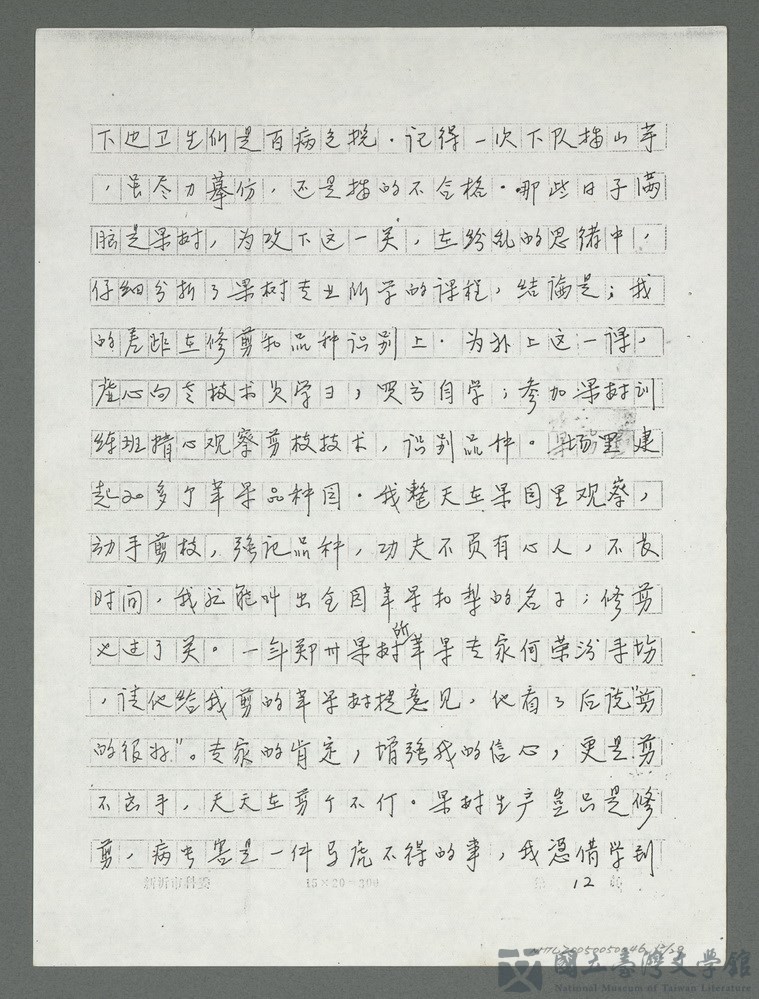 下也卫生们是百病包揽．记得一次下队描山芋
，虽尽力摹仿，还是描的不合格．那些日子满
脑是果树，为攻下这一关，在纷乱的思绪中，
仔细分析了果树专业所学的课程，结论是；我
的差距在修剪和品种识别上．为补上这一课，
虚心向老技术员学习，买书自学；参加果树训
练班精心观察剪枝技术，识别品种。果场里建
起20多个苹果品种园．我整天在果园里观察，
动手剪枝，强记品种，功夫不负有心人，不长
时间，我就能叫出全园苹果和梨的名子；修剪
也过了关。一年郑州果树所苹果专家何荣汾手场
，请他给我剪的苹果树提意见，他看了后说"剪
的很好"。专家的肯定，增强我的信心，更是剪
不离手，天天在剪个不停。果树生产岂只是修
剪，病虫害是一件马虎不得的事，我凭借学到
新沂市科委 15×20=300 第 12 页
NMTL20050050046 12/39
國立臺灣文學館
National Museum of Taiwan Literature